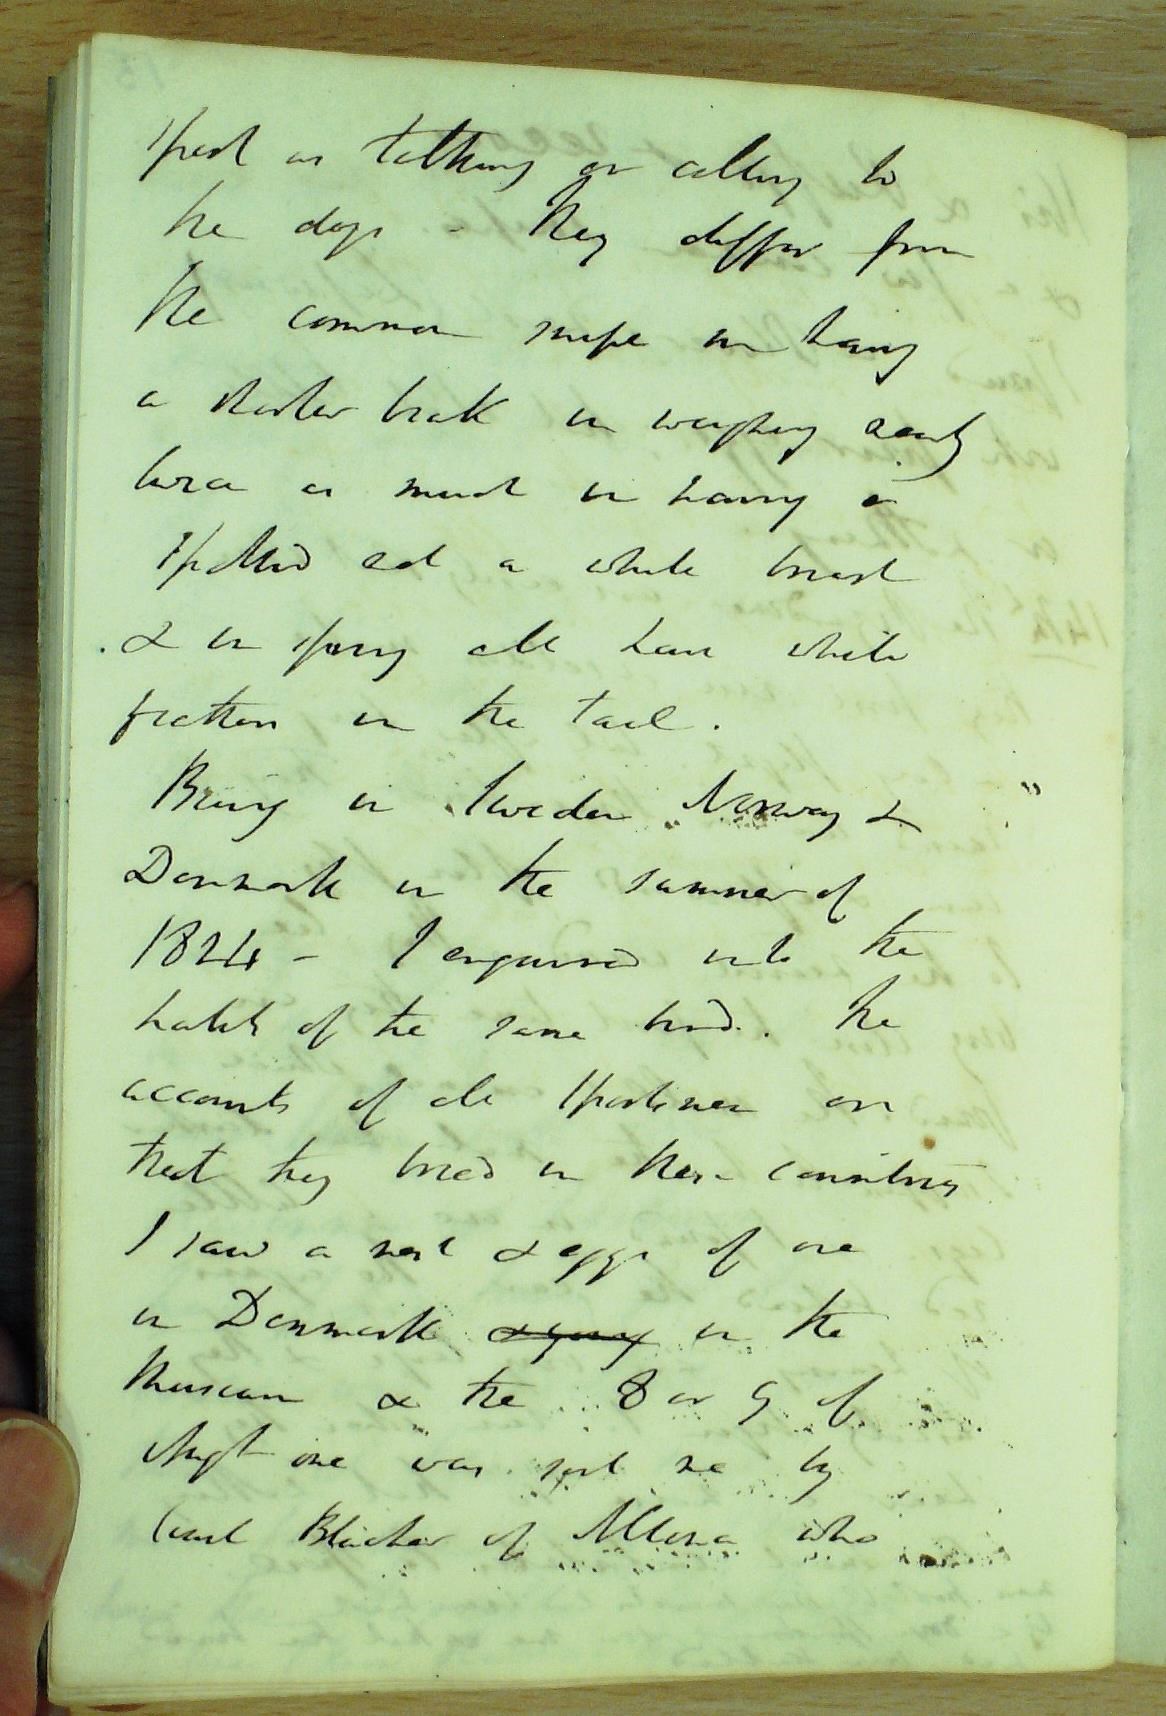 spent in talking or calling to
the dogs. - They differ from
the common snipe in having
a shorter beak in weighing nearly
twice as much in having a
spotted and a white breast
& in spring all have white
feathers in the tail.
Being in Sweden Norway &
Denmark in the summer of
1824 - I enquired into the
habits of the same bird. The
accounts of all sportsmen are
that they breed in these countries
I saw a nest & eggs of one
in Denmark in the
Museum & the 8 or 9 of
Augt one was sent me by
Count Blücher of Altona who